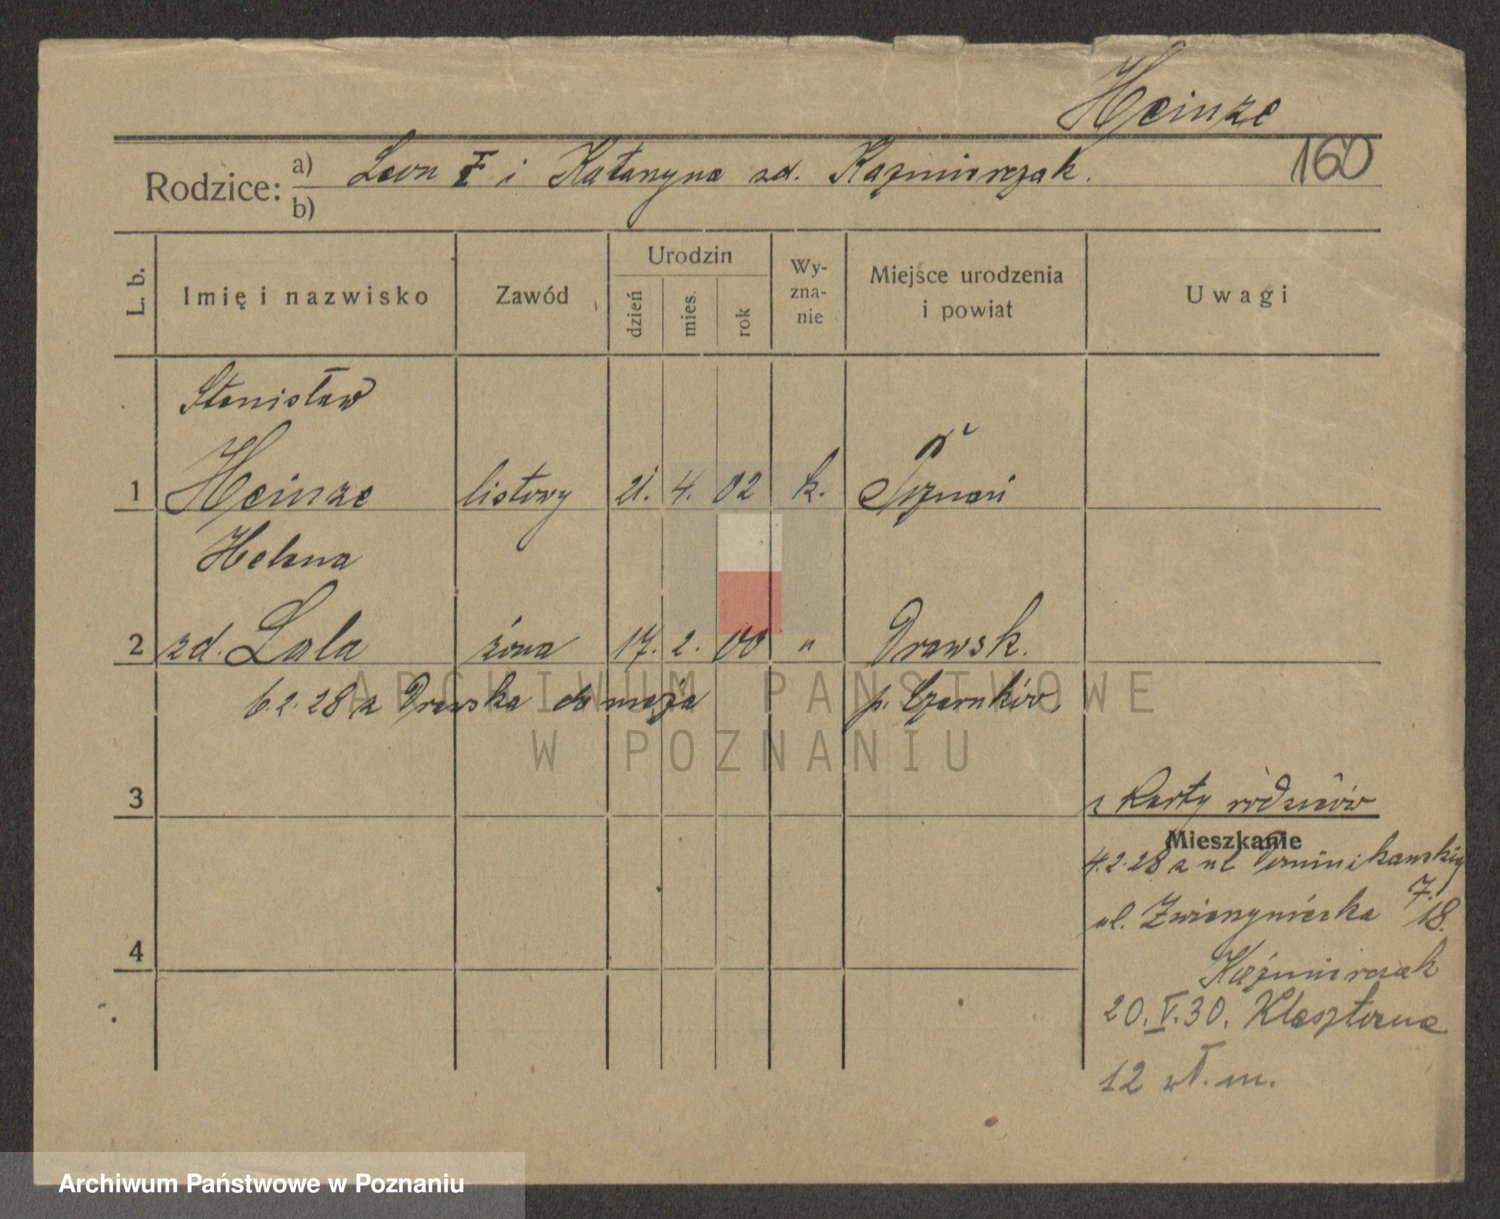 Heinze
160
Rodzice: a) Leon i Katarzyna zd. Kaźmierczak.
b)
L. b.
Imię i nazwisko
Zawód
Urodzin
dzień
mies.
rok
Wy-
zna-
nie
Miejsce urodzenia
i powiat
Uwagi
Stanisław
1 Heinze listowy 21. 4. 02 k. Poznań
Helena
2 zd. Lala żona 17. 2. 00 " Drawsk.
6.2.28 z Drawska do męża p. Czarnków
3
z karty rodziców
Mieszkanie
4.2.28 z ul Dominikańskiej
7.
ul. Zwierzyniecka 18.
4
Kaźmierczak
20.V.30. Klasztorna
12 wł. m.
ARCHIWUM PAŃSTWOWE
W POZNANIU
Archiwum Państwowe w Poznaniu